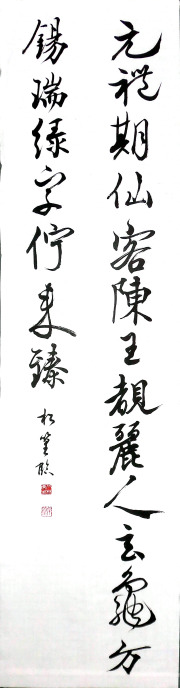 元禮期仙客陳王覩麗人玄龜方
錫瑞綠字佇來臻